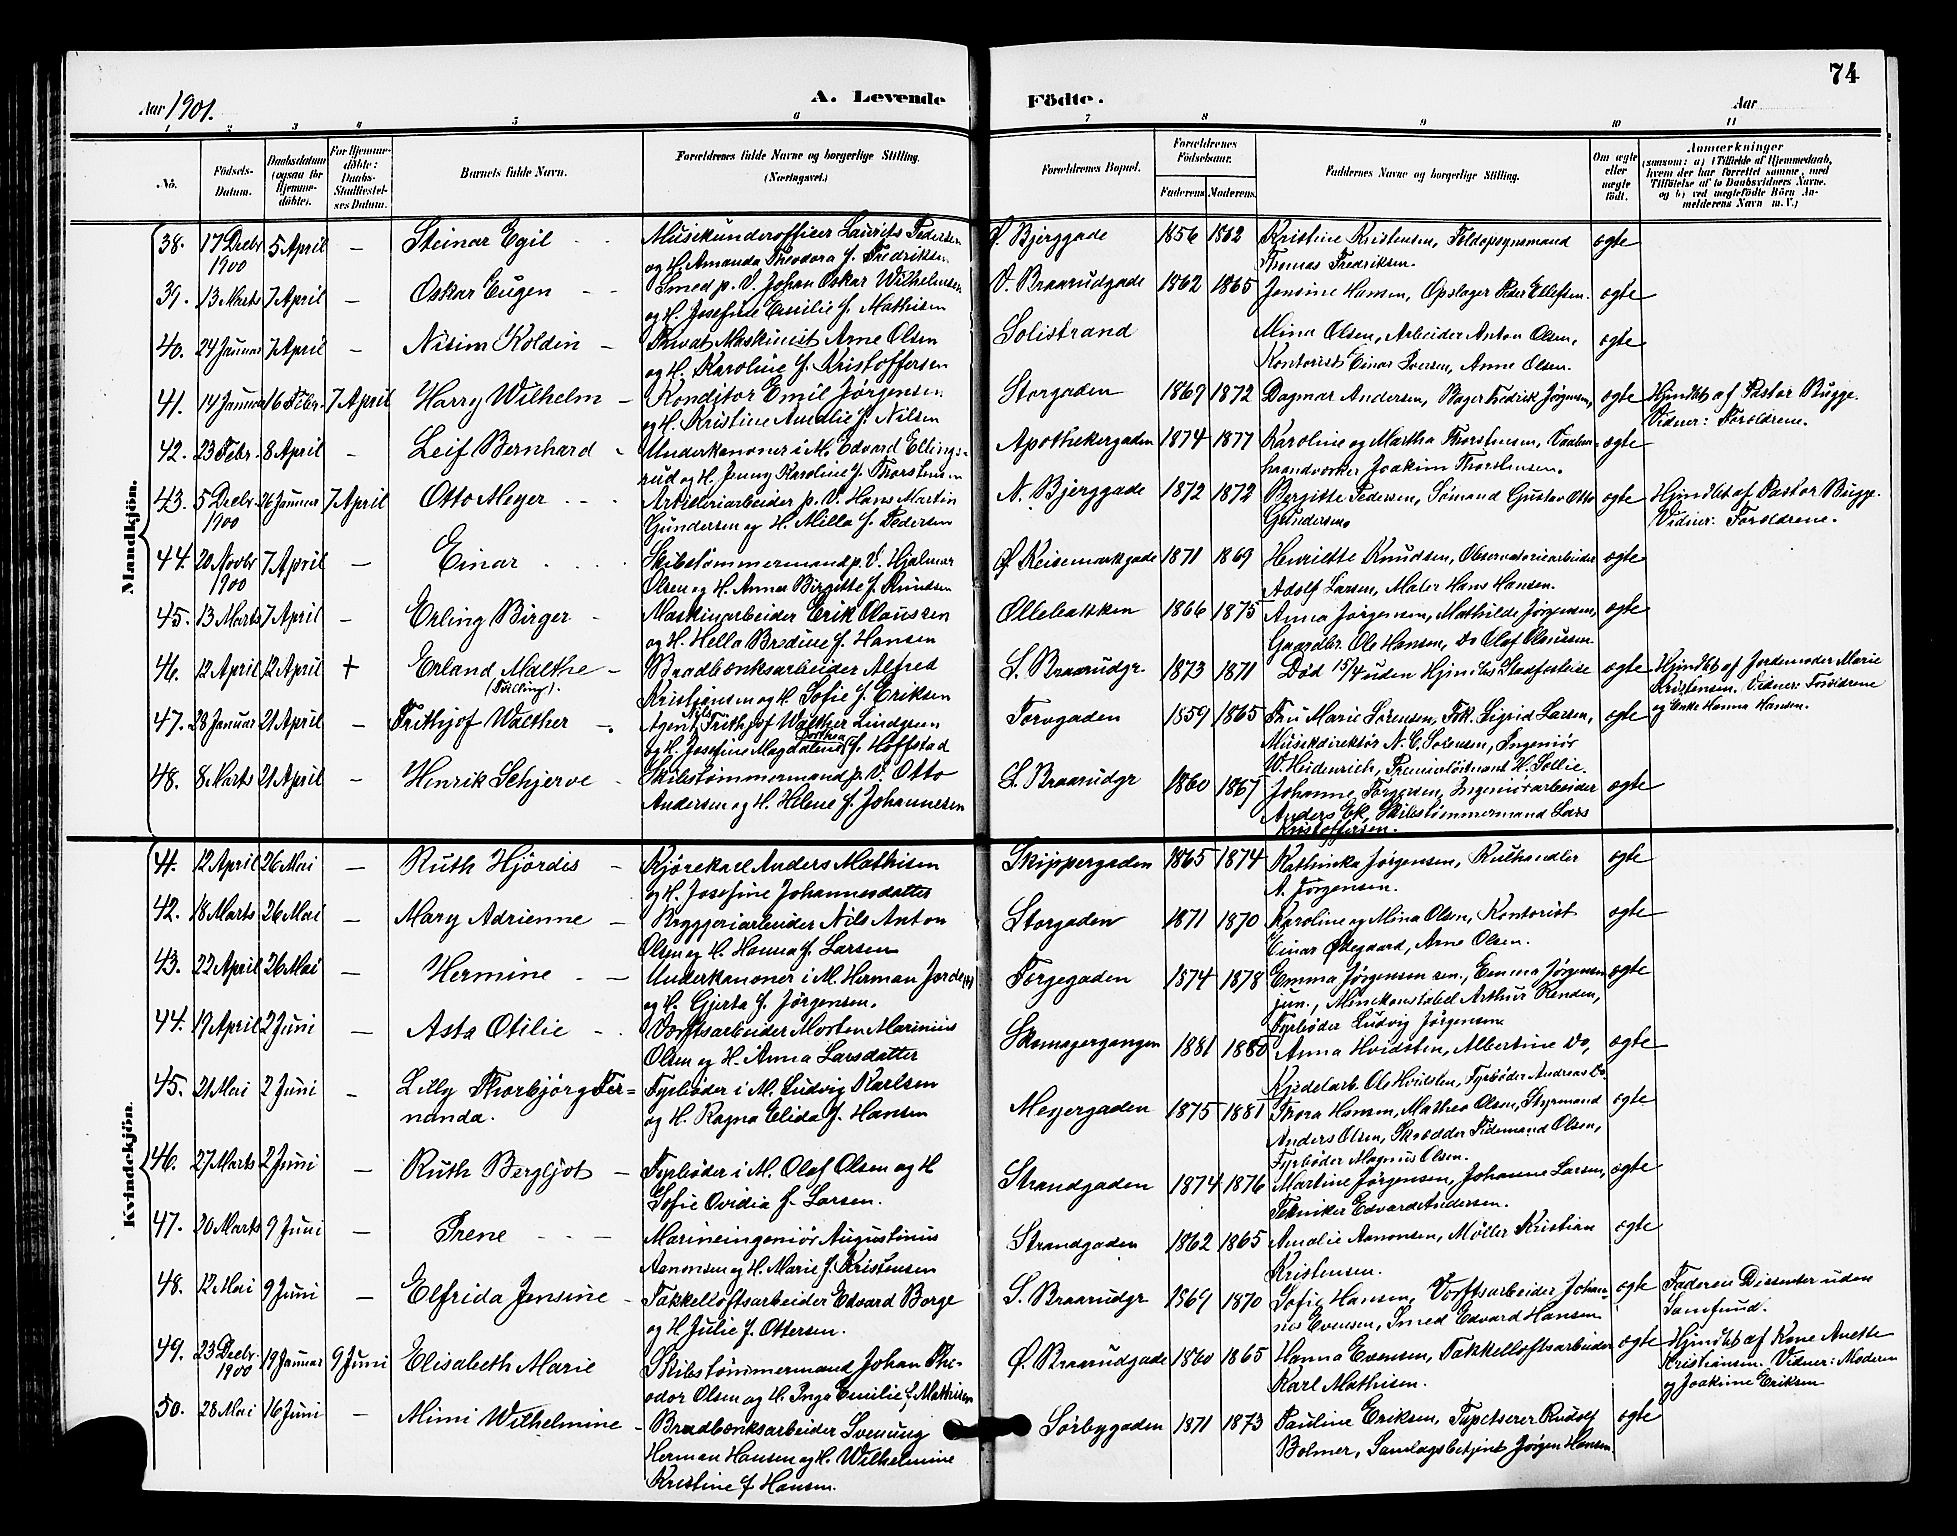 74
Aar 1901.
A. Levende Födte.
Aar
1 2 3 4 5 6 7 8 9 10 11
No. Födsels-Datum. Daabsdatum (ogsaa for Hjemmedöbte). For Hjemmedöbte: Daabs-Stadfæstelses Datum. Barnets fulde Navn. Forældrenes fulde Navne og borgerlige Stilling. (Næringsvei.) Forældrenes Bopæl. Forældrenes Födselsaar. Faderens Moderens. Faddernes Navne og borgerlige Stilling. Om ægte eller uægte født. Anmærkninger (saasom: a) i Tilfælde af Hjemmedaab, hvem der har forrettet samme, med Tilföielse af to Daabsvidners Navne, og b) ved uægtefödte Börn Anmelderens Navn m. V.)
Mandkjön.
38. 17 Decbr 1900 5 April — Steinar Egil Musikunderofficer Laurits Pedersen og H. Amanda Theodora f. Fredriksen Ø. Bjerggade 1856 1862 Kristine Kristensen, Toldopsynsmand Thomas Fredriksen. ægte
39. 13 Marts 7 April — Oskar Eugen Smed p. V. Johan Oskar Wilhelmsen og H. Josefine Emilie f. Mathisen V. Braarudgade 1862 1865 Jensine Hansen, Opslager Peder Ellefsen. ægte
40. 24 Januar 7 April — Nisim Koldin Privat Maskinist Arne Olsen og H. Karoline f. Kristoffersen Solistrand Mina Olsen, Arbeider Anton Olsen, Kontorist Einar Iversen, Anne Olsen. ægte
41. 14 Januar 16 Febr. 7 April Harry Wilhelm Konditor Emil Jørgensen og H. Kristine Amalie f. Nilsen Storgaden 1869 1872 Dagmar Andersen, Bager Fredrik Jørgensen, ægte Hjmdbt af Pastor Bugge. Vidner: Forældrene.
42. 23 Febr. 8 April — Leif Bernhard Underkanoner i M. Edvard Ellingsrud og H. Jenny Karoline f. Thorstensen Apothekergaden 1874 1877 Karoline og Martha Thorstensen, Vaabenhaandværker Joakim Thorstensen. ægte
43. 5 Decbr. 1900 26 Januar 7 April Otto Meyer Artilleriarbeider p. V. Hans Martin Gundersen og H. Milla f. Pedersen N. Bjerggade 1872 1872 Bergitte Pedersen, Sømand Gustav Otto Gundersen. ægte Hjmdbt af Pastor Bugge. Vidner: Forældrene.
44. 20 Novbr 1900 7 April — Einar Skibstømmermand p. V. Hjalmar Olsen og H. Anna Birgitte f. Knudsen Ø. Keisemarkgade 1871 1869 Henriette Knudsen, Observatoriearbeider Adolf Larsen, Maler Hans Hansen. ægte
45. 13 Marts 7 April — Erling Birger Maskinarbeider Erik Claussen og H. Hella Bredine f. Hansen Ollebakken 1866 1875 Anna Jørgensen, Mathilde Jørgensen, Gaardbr. Ole Hansen, Do Olaf Claussen. ægte
46. 12 April 12 April + Erland Malthe (Tvilling). Bradbænksarbeider Alfred Kristjansen og H. Sofie f. Eriksen S. Braarudgr 1873 1871 Død 15/4 uden Hjmdbs Stadfæstelse ægte Hjmdbt af Jordemoder Marie Kristensen. Vidner: Forældrene og Enke Hanna Hansen.
47. 28 Januar 21 April — Frithjof Walther Agent Nils Frithjof Walther Lindgren og H. Josefine Magdalene Dorthea f. Hoffstad Torvgaden 1859 1865 Fru Marie Sørensen, Frk. Sigrid Larsen, Musikdirektør N. C. Sørensen, Ingeniør W. Heidenrich, Premierløitnant H. Sollie. ægte
48. 8 Marts 21 April — Henrik Schjerve Skibstømmermand p. V. Otto Andersen og H. Helene f. Johannesen S. Braarudgr 1860 1867 Johanne Torgersen, Ingeniørarbeider Anders Ek, Skibstømmermand Lars Kristoffersen. ægte
Kvindekjön.
41. 12 April 26 Mai — Ruth Hjördis Kjørekarl Anders Mathisen og H. Josefine Johannesdatter Skippergaden 1865 1874 Kathinka Jørgensen, Kulhandler A. Jørgensen. ægte
42. 18 Marts 26 Mai — Mary Adrienne Bryggeriarbeider Nils Anton Olsen og H. Hanna f. Larsen Storgaden 1871 1870 Karoline og Mina Olsen, Kontorist Einar Ødegaard, Arne Olsen. ægte
43. 22 April 26 Mai — Hermine Underkanoner i M. Herman Jorde og H. Gjerta f. Jørgensen. Torgegaden 1874 1878 Emma Jørgensen sen., Emma Jørgensen jun., Minekonstabel Arthur Renden, Fyrbøder Ludvig Jørgensen. ægte
44. 19 April 2 Juni — Asta Otilie Værftsarbeider Morten Marinius Olsen og H. Anna Larsdatter Skomagergangen 1881 1880 Anna Hvidsten, Albertine Do, Kjedelarb. Ole Hvidsten, Fyrbøder Andreas Do. ægte
45. 21 Mai 2 Juni — Lilly Thorbjørg Fernanda. Fyrbøder i M. Ludvig Karlsen og H. Ragna Elida f. Hansen Meyergaden 1875 1881 Thora Hansen, Mathea Olsen, Styrmand Anders Olsen, Skrædder Tidemand Olsen, Fyrbøder Magnus Olsen. ægte
46. 27 Marts 2 Juni — Ruth Bergljot Fyrbøder i M. Olaf Olsen og H Sofie Ovidia f. Larsen. Strandgaden 1874 1876 Martine Jørgensen, Johanne Larsen, Tekniker Edvard Andersen. ægte
47. 20 Marts 9 Juni — Irene Marineingeniør Augustinus Aanonsen og H. Marie f. Kristensen Strandgaden 1862 1865 Amalie Aanonsen, Møller Kristian Kristensen. ægte
48. 12 Mai 9 Juni — Elfrida Jensine Takkelloftsarbeider Edvard Borge og H Julie f. Ottersen. S. Braarudgr 1869 1870 Sofie Hansen, Værftsarbeider Johannes Evensen, Smed Edvard Hansen ægte Faderen Dissenter uden Samfund.
49. 23 Decbr. 1900 19 Januar 9 Juni Elisabeth Marie Skibstømmermand Johan Theodor Olsen og H. Inga Emilie f. Mathisen Ø. Braarudgade 1860 1865 Hanna Evensen, Takkelloftsarbeider Karl Mathisen. ægte Hjmdbt af Kone Anette Kristiansen. Vidner: Moderen og Joakime Eriksen
50. 28 Mai 16 Juni — Mimi Wilhelmine Bradbænksarbeider Svenung Herman Hansen og H. Wilhelmine Kristine f Hansen. Sørbygaden 1871 1873 Pauline Eriksen, Tapetserer Rudolf Bolmer, Samlagsbetjent Jørgen Hansen. ægte